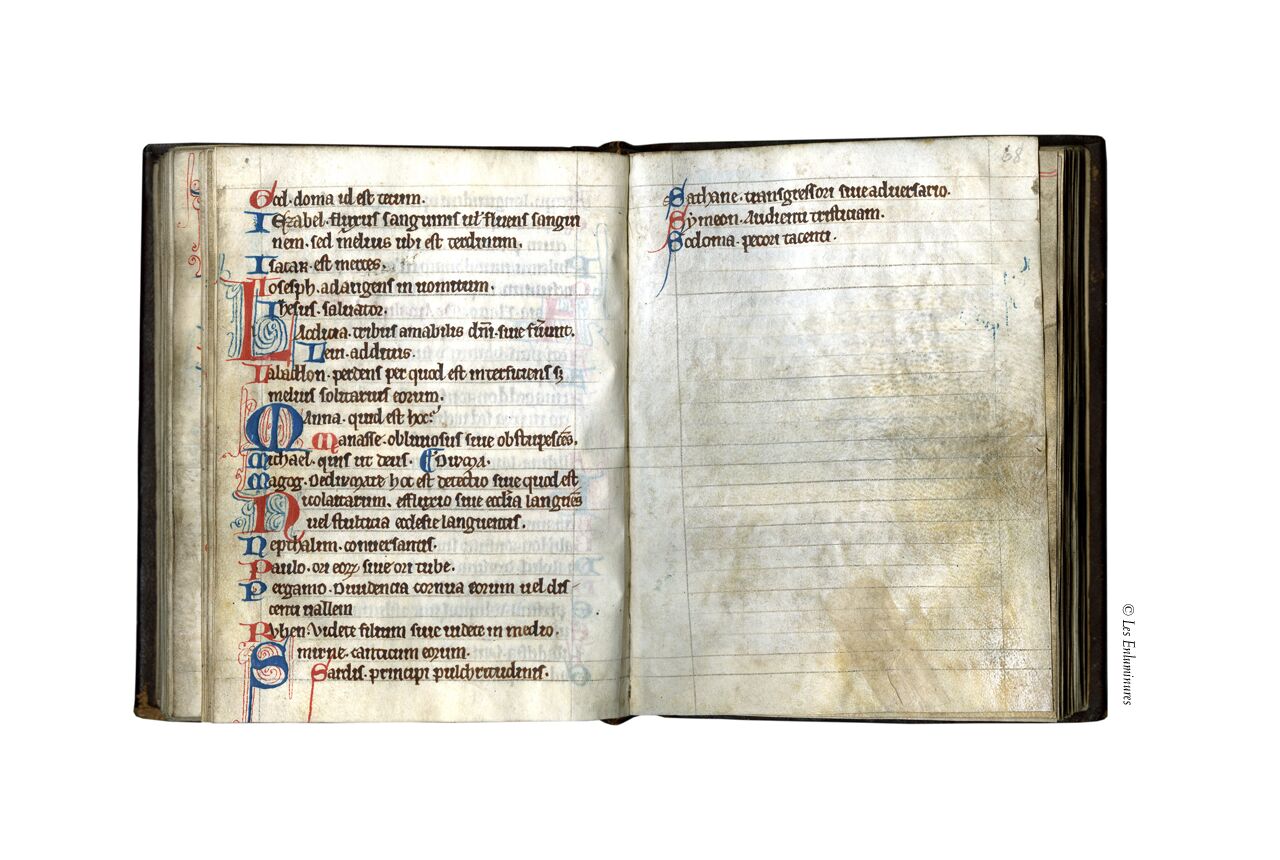 God. doma ul est tectum.
Iezabel. fluxus sanguinis ul' fluens sangui
nem. sed melius ubi est terdinum.
Isacar. est merces.
Ioseph. adaugens in uomitum.
Ihesus. saluator.
tribus amabilis dñi siue fũunt.
Leui. additus.
perdens per quod est interficiens sʒ
melius solitarius eorum.
Manna. quid est hoc?
Manasse. obliuiosus siue obstupescẽs.
Michael. quis ut deus.
Magog. hoc est detectio siue quod est
Nicolaitarum. effusio siue eccl̃ia languẽs
uel stulticia ecclesie languentis.
Neptalim. conuersantis.
Paulo. ori eoꝝ siue ori tube.
Pergamo. Diuidencia cornua eorum uel dis-
centi uallem
Ruben. Videte filium siue uidete in medio.
Smirne. canticum eorum.
Sardis. principi pulchritudinis.
68
Sathane. transgressori siue aduersario.
Symeon. Audienti tristiciam.
Sodoma. pecori tacenti.
© Les Enluminures